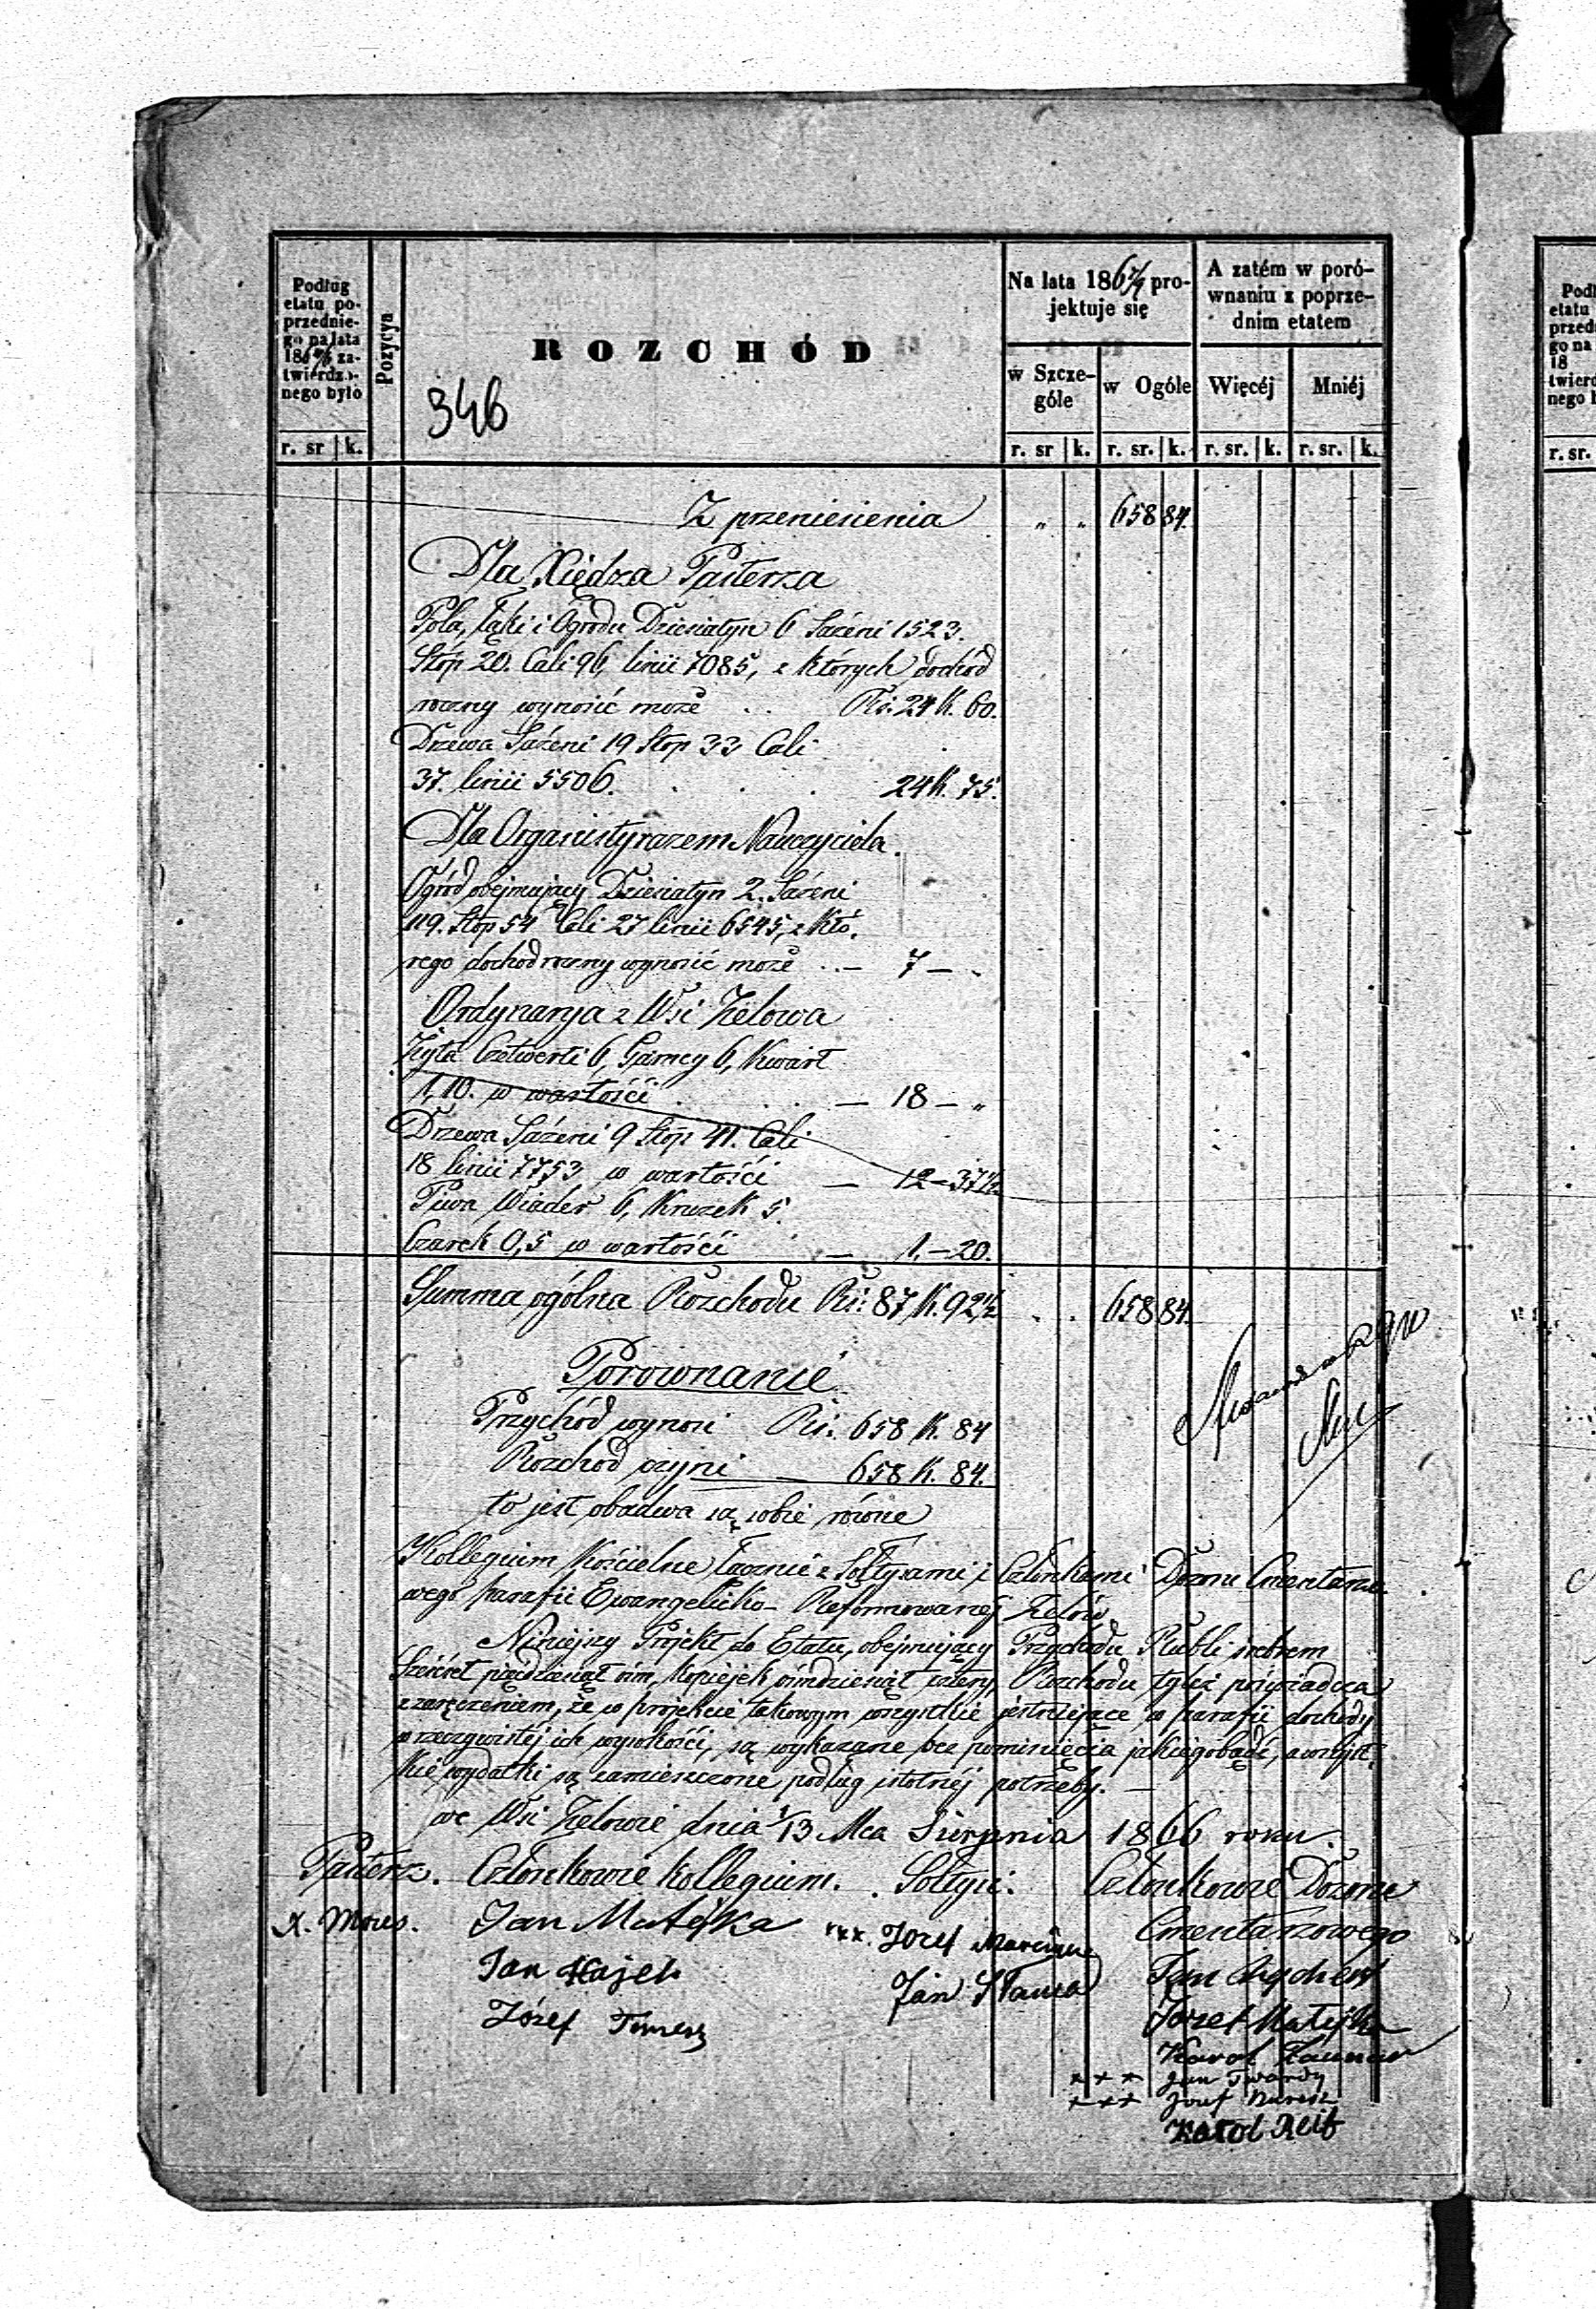 Podług
etatu po-
przednie-
go na lata
186 za-
twierdzo-
nego było
Pozycya
ROZCHÓD
346
Na lata 186 7/9 pro-
jektuje się
A zatém w poró-
wnaniu z poprze-
dnim etatem
w Szcze-
góle
w Ogóle
Więcéj
Mniéj
r. sr k. r. sr k. r. sr. k. r. sr. k. r. sr. k.
Z przeniesienia " " 658 84.
Dla Xiędza Pasterza
Pola, Łąki i Ogrodu Dziesiatyn 6 Sażeni 1523.
Stóp 20. Cali 96, linii 7085, z których dochód
roczny wynosić może . . Rs. 24 K. 60.
Drzewa Sażeni 19 Stop 33 Cali
37. linii 5506. . . . 24 K. 75.
Dla Organisty razem Nauczyciela.
Ogród obejmujący Dziesiatyn 2. Sażeni
119. Stop 54 Cali 27 linii 6545, z któ.
rego dochod roczny wynosić może . . — 7 — .
Ordynarya z Wsi Zelowa
Żyta Czetwerti 6, Garncy 6, Kwart
1,10. w wartości . . . — 18 — „
Drzewa Sażeni 9 Stop 41. Cali
18 linii 7753 w wartości — 12 — 37 1/2
Piwa Wiader 6, Kruzek 5.
Czarek 0,5 w wartości — 1. — 20.
Summa ogólna Rozchodu Rs: 87 K. 92 1/2 . . 658 84.
Porownanie
Przychód wynosi Rs: 658 K. 84
Rozchod czyni — 658 K. 84.
to jest obadwa są sobie równe
Kollegium Kościelne łącznie z Sołtysami i Członkami Dozoru Cmentarzo
wego parafii Ewangelicko- Reformowanej Zelów
Niniejszy Projekt do Etatu, obejmujący Przychodu Rubli srebrem
Sześćset pięćdziesiąt ośm, Kopiejek ośmdziesiąt cztery, Rozchodu tyleż poświadcza
z zaręczeniem, że w projekcie takowym wszystkie istniejące w parafii dochody
w rzeczywistej ich wysokości, są wykazane bez pominięcia jakiegobądź, a wszyst
kie wydatki są zamieszczone podług istotnéj potrzeby. —
we Wsi Zelowie dnia 1/13 Mca Sierpnia 1866 roku.
Pasterz. Członkowie kollegium. Sołtysi. Członkowie Dozoru
Cmentarzowego
X. Moses. Jan Matejka xxx. Jozef
Jan Hajek Jan
Józef Jan
Jozef Matejka
Karol
xxx Jan Twardy
xxx Jozef
Karol Reif